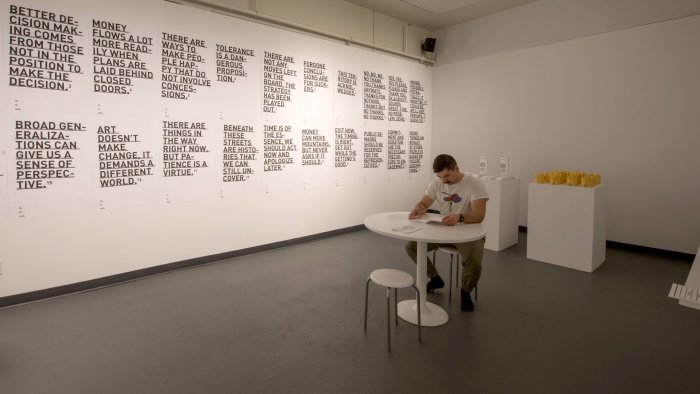 BETTER DE-
CISION MAK-
ING COMES
FROM THOSE
NOT IN THE
POSITION TO
MAKE THE
DECISION.
MONEY
FLOWS A LOT
MORE READ-
ILY WHEN
PLANS ARE
LAID BEHIND
CLOSED
DOORS.
THERE ARE
WAYS TO
MAKE PEO-
PLE HAP-
PY THAT DO
NOT INVOLVE
CONCES-
SIONS.
TOLERANCE
IS A DAN-
GEROUS
PROPOSI-
TION.
THERE ARE
NOT ANY
MOVES LEFT
ON THE
BOARD. THE
STRATEGY
HAS BEEN
PLAYED
OUT.
FORGONE
CONCLU-
SIONS ARE
FOR SUCK-
ERS.
THIS TER-
RITORY IS
ACKNOWL-
EDGED.
NO, NO, NO.
NO THANK
YOU. THANKS
ANYWAYS.
THANKS FOR
NOTHING.
THANKS BUT
NO THANKS.
NO. THANKS.
BROAD GEN-
ERALIZA-
TIONS CAN
GIVE US A
SENSE OF
PERSPEC-
TIVE.
ART
DOESN'T
MAKE
CHANGE, IT
DEMANDS A
DIFFERENT
WORLD.
THERE ARE
THINGS IN
THE WAY
RIGHT NOW,
BUT PA-
TIENCE IS A
VIRTUE.
BENEATH
THESE
STREETS
ARE HISTO-
RIES THAT
WE CAN
STILL UN-
COVER.
TIME IS OF
THE ES-
SENCE. WE
SHOULD ACT
NOW AND
APOLOGIZE
LATER.
MONEY
CAN MOVE
MOUNTAINS,
BUT NEVER
ASKS IF IT
SHOULD.
EXIT NOW.
THE TIMING
IS RIGHT.
GET OUT
WHILE THE
GETTING'S
GOOD.
PUBLIC RE-
MARKS
SHOULD BE
RESERVED
FOR THE